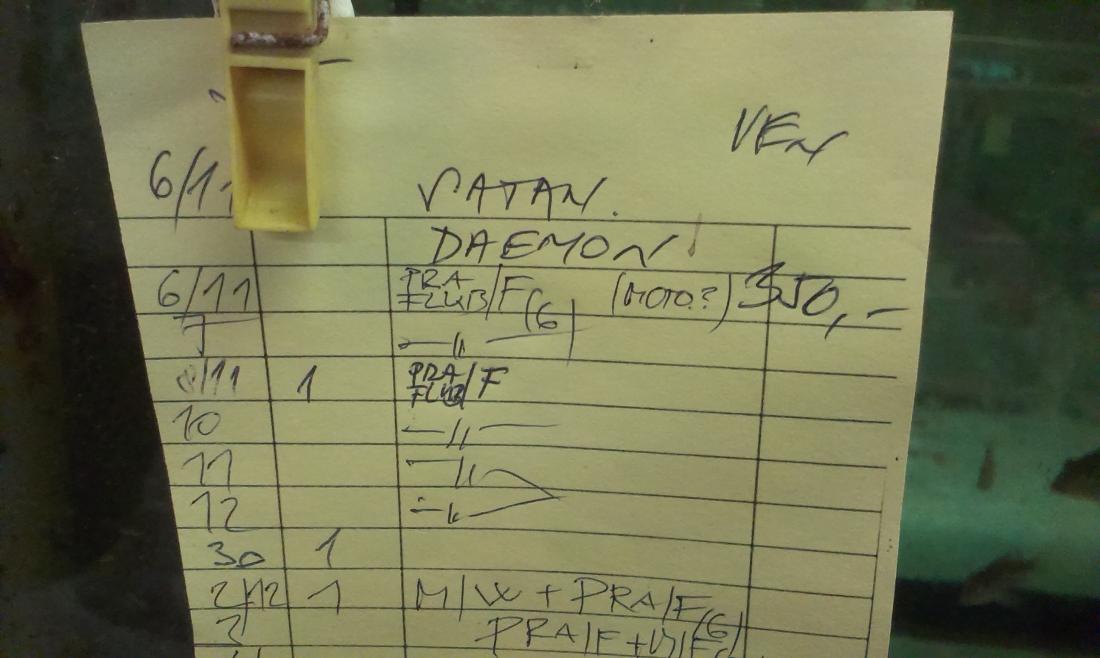 VEN
6/11 SATAN.
DAEMON!
6/11 PRA FLUB/F (6) (MOTO?) 350,-
7 —〃—
8/11 1 PRA FLUB/F
10 —〃—
11 —〃
12 —〃
30 1
2/12 1 M/W + PRA/F (6)
PRA/F+